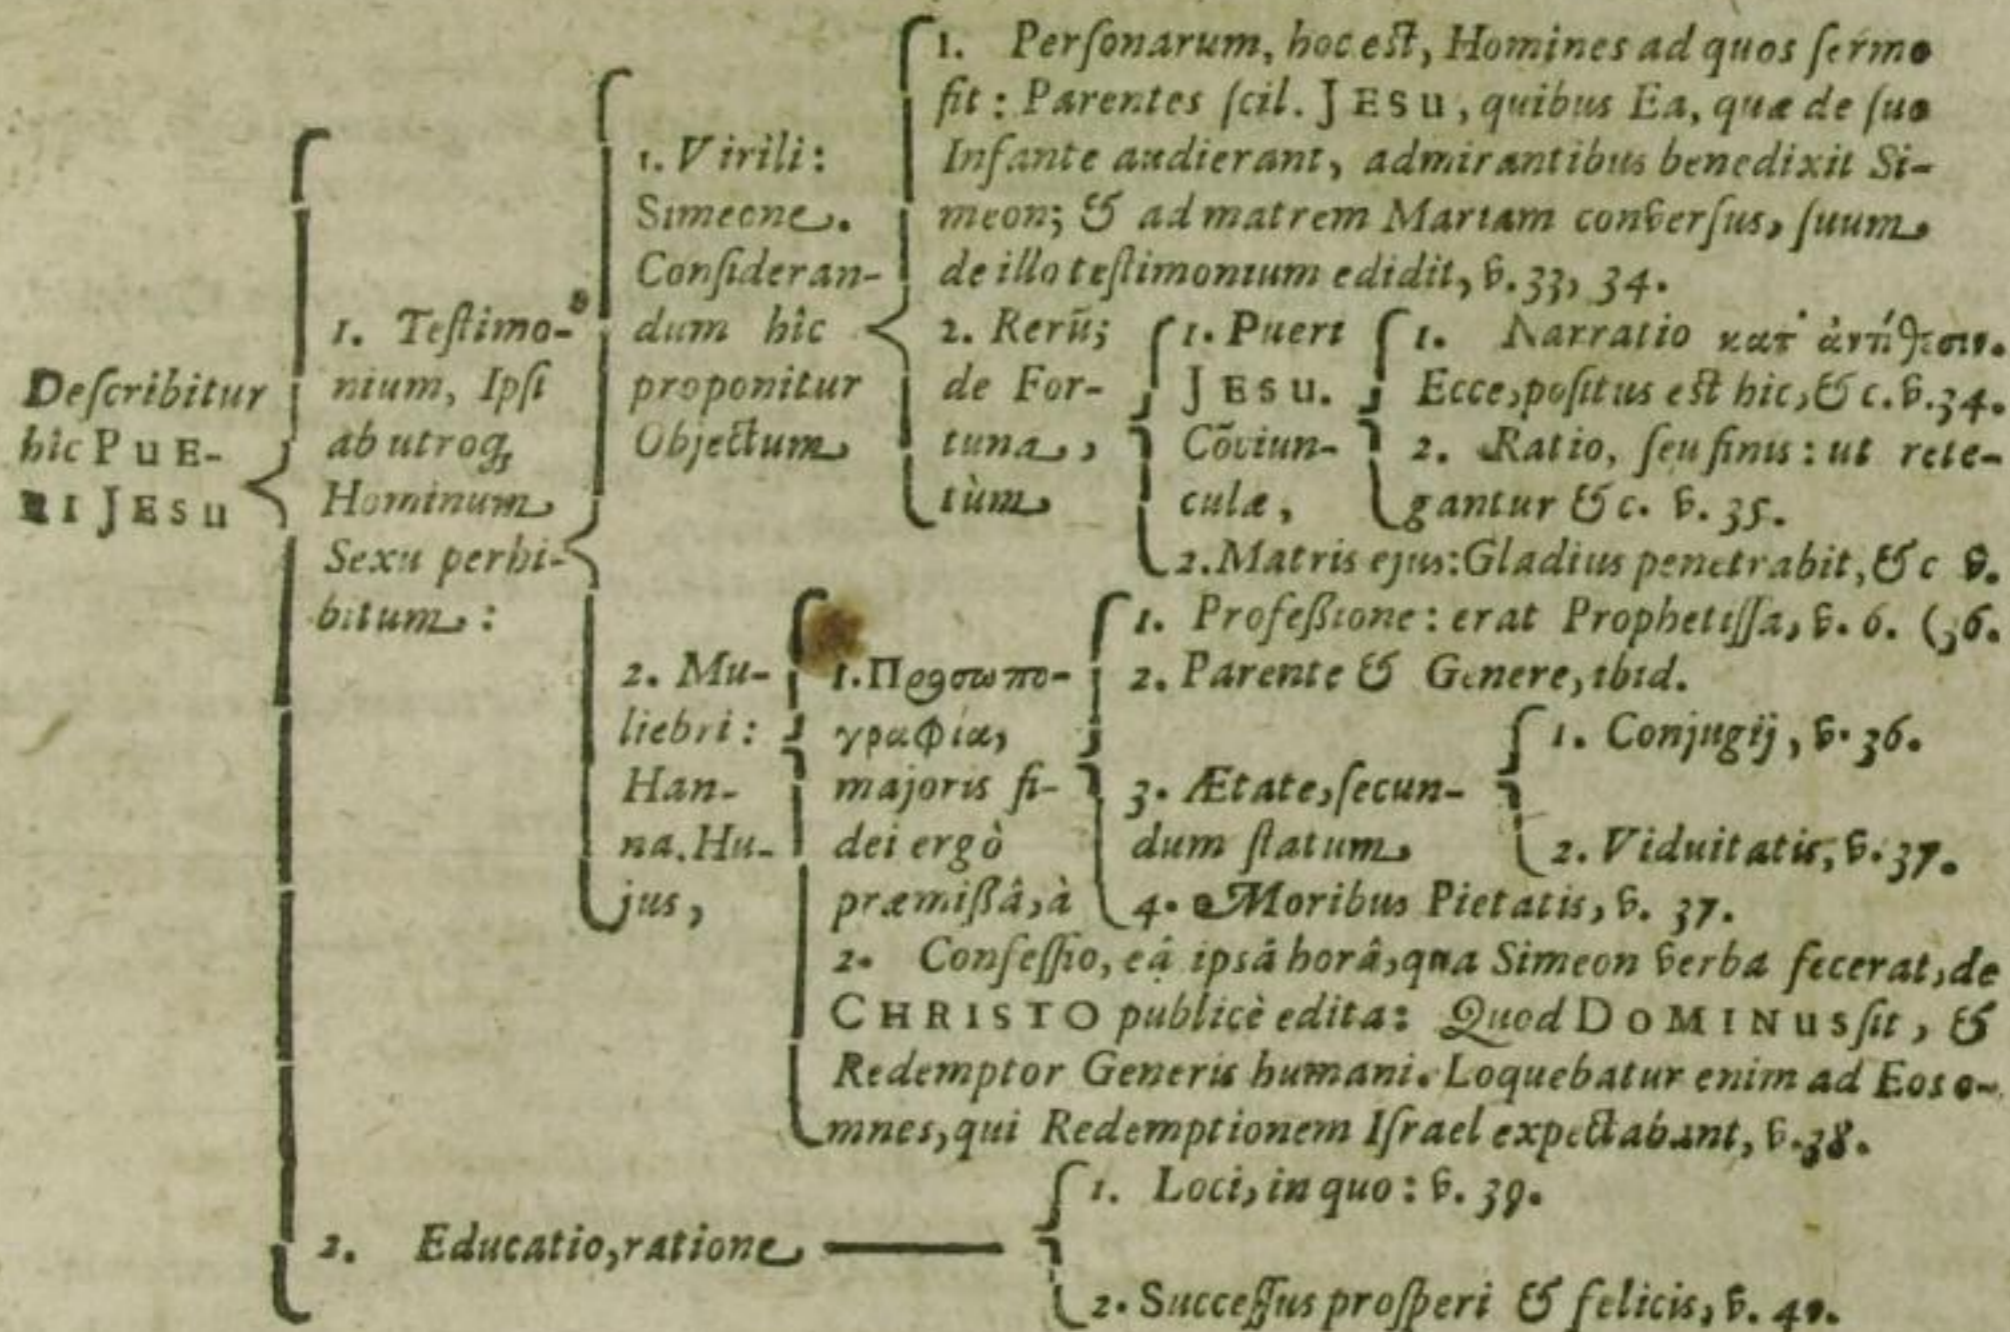 Deſcribitur
hîc PUE-
RI JESU
1. Teſtimo-
nium, Ipſi
ab utroq;
Hominum
Sexu perhi-
bitum:
1. Virili:
Simeone.
Conſideran-
dum hîc
proponitur
Objectum
1. Perſonarum, hoc eſt, Homines ad quos ſermo
fit: Parentes ſcil. JESU, quibus Ea, quæ de ſuo
Infante audierant, admirantibus benedixit Si-
meon; & ad matrem Mariam converſus, ſuum
de illo teſtimonium edidit, v. 33, 34.
2. Rerũ;
de For-
tuna,
tùm
1. Pueri
JESU.
Cõviun-
culæ,
1. Narratio κατ' ἀντίθεσιν.
Ecce, poſitus eſt hic, & c. v. 34.
2. Ratio, ſeu finis: ut rete-
gantur & c. v. 35.
2. Matris ejus: Gladius penetrabit, & c v.
(36.
2. Mu-
liebri:
Han-
na. Hu-
jus,
1. Προσωπο-
γραφία,
majoris fi-
dei ergò
præmiſſâ, à
1. Profeſſione: erat Prophetiſſa, v. 6.
2. Parente & Genere, ibid.
3. Ætate, ſecun-
dum ſtatum
1. Conjugij, v. 36.
2. Viduitatis, v. 37.
4. Moribus Pietatis, v. 37.
2. Confeſſio, eâ ipsâ horâ, qua Simeon verba fecerat, de
CHRISTO publicè edita: Quod DOMINUS ſit, &
Redemptor Generis humani. Loquebatur enim ad Eos o-
mnes, qui Redemptionem Iſrael expectabant, v. 38.
2. Educatio, ratione
1. Loci, in quo: v. 39.
2. Succeſſus proſperi & felicis, v. 40.